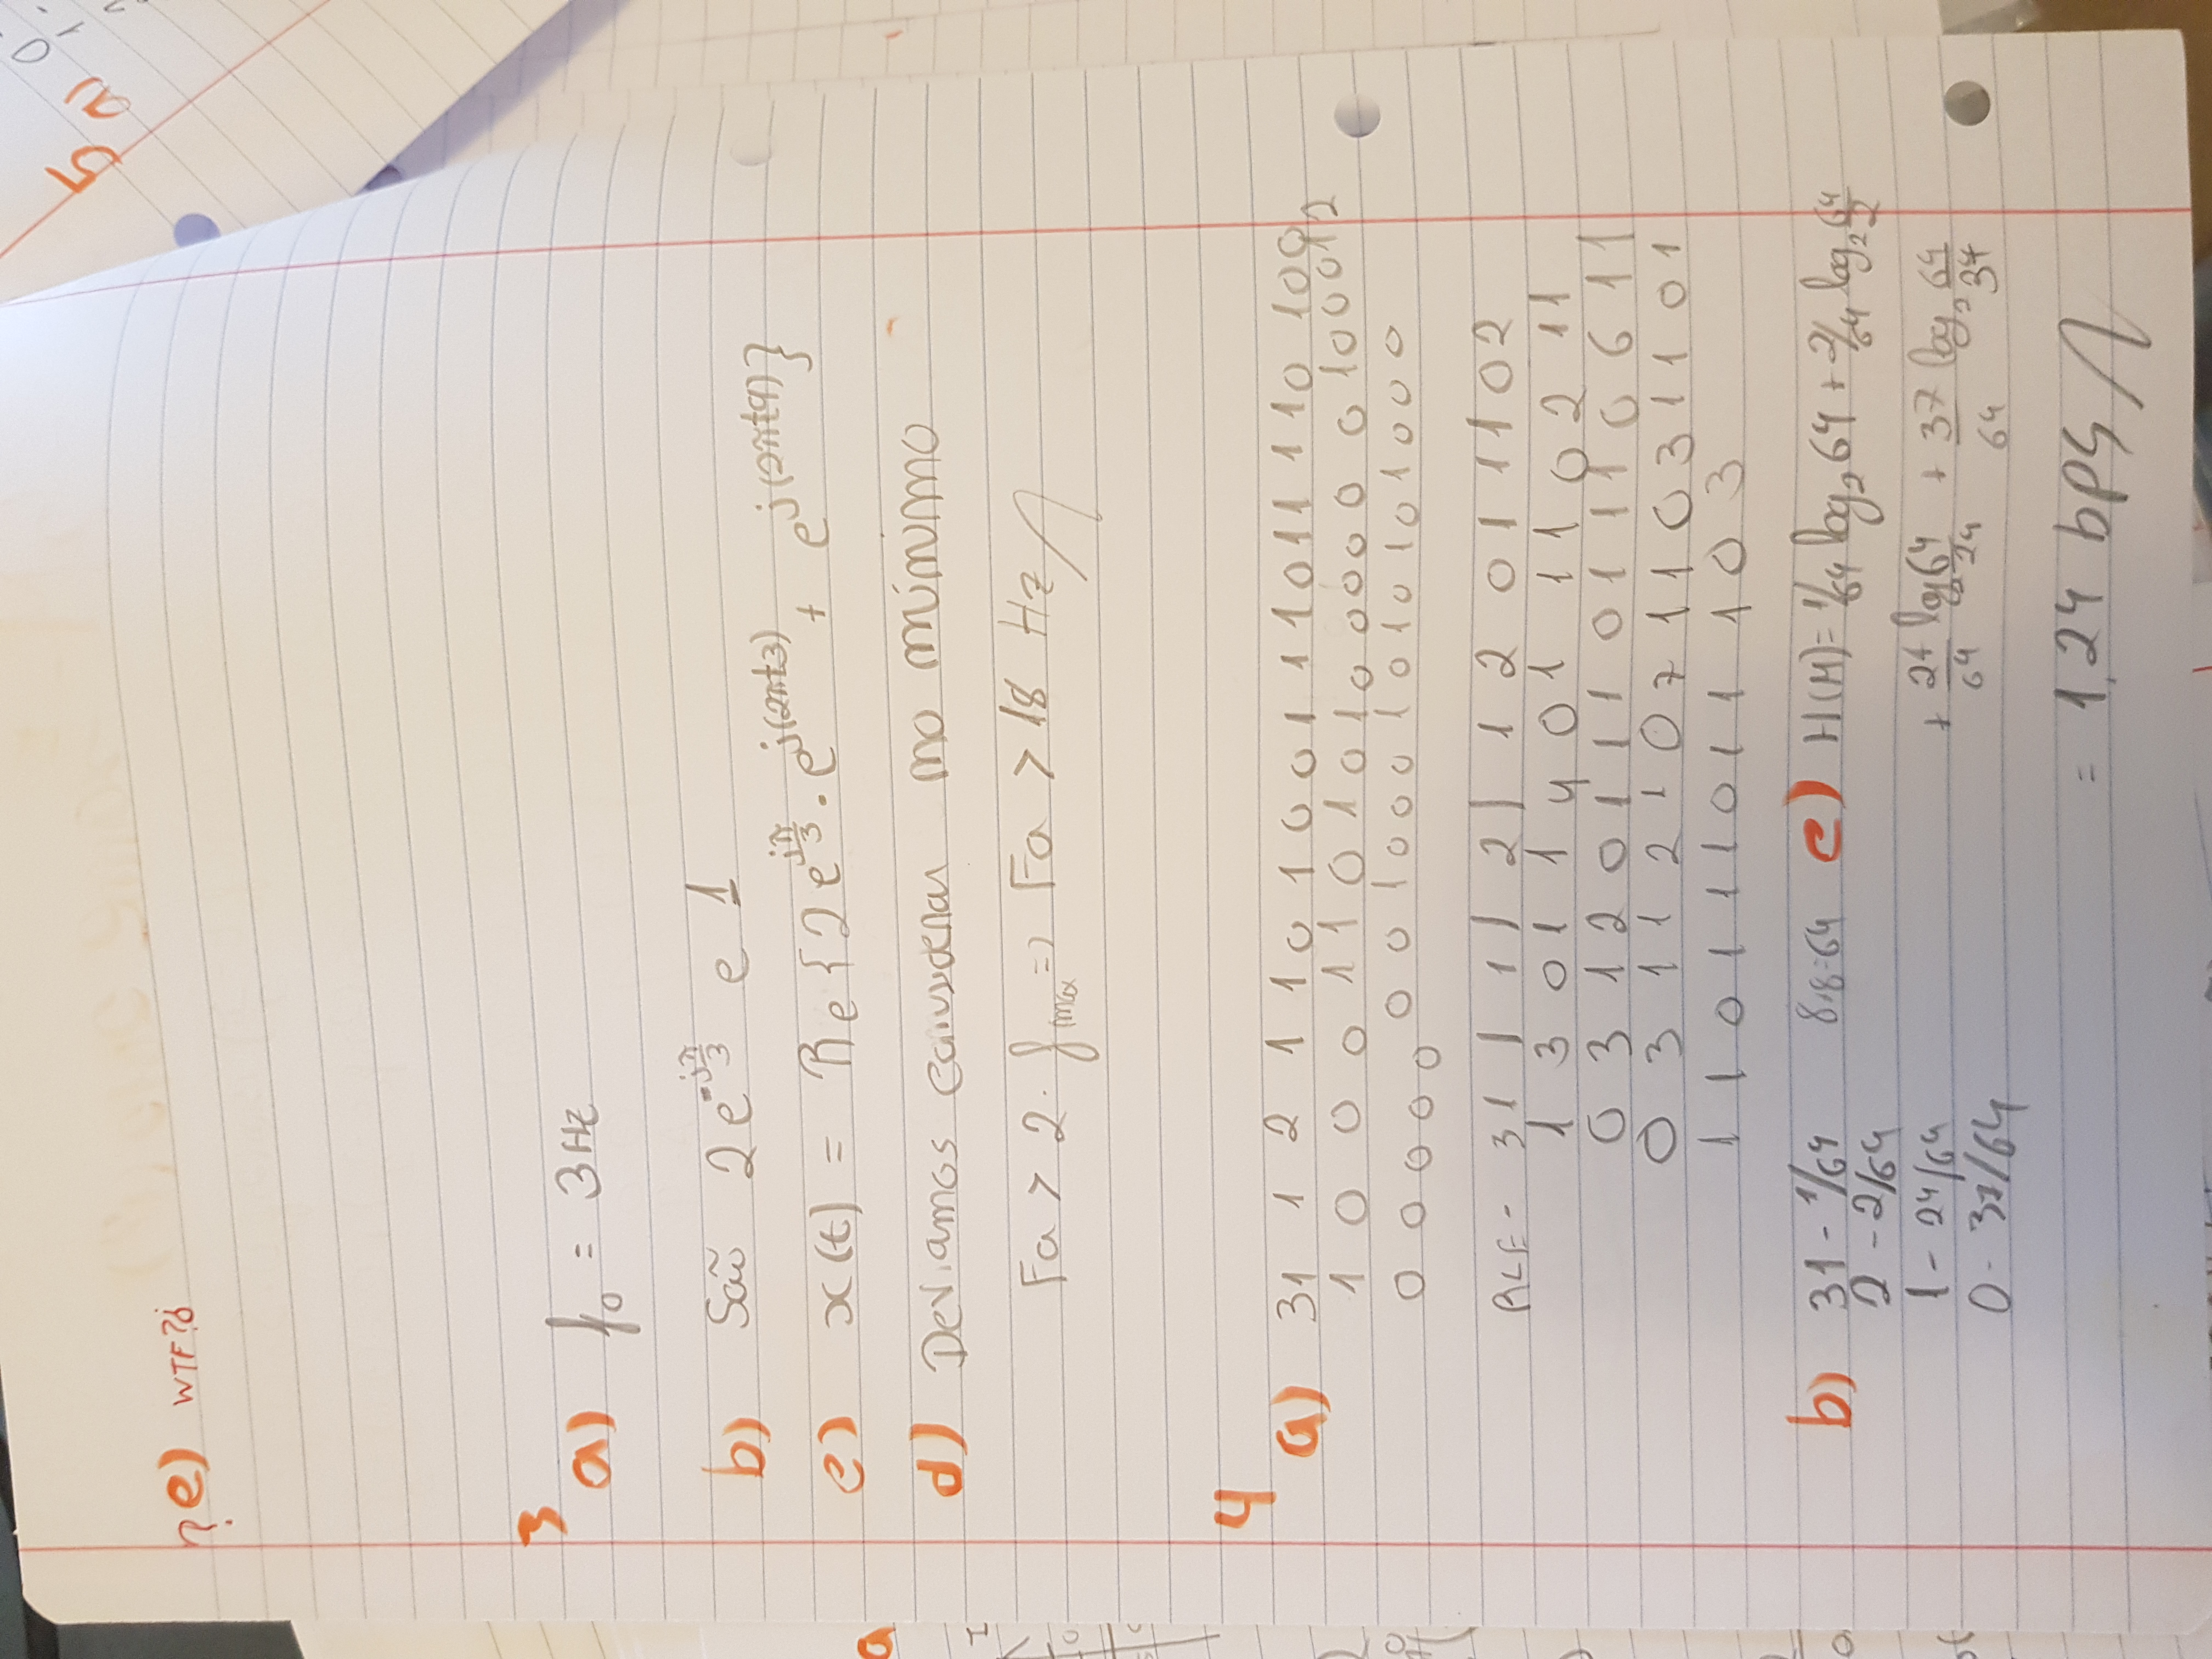 ? e) WTF?¿
3
a) f₀ = 3Hz
b) São 2e^{-jπ/3} e 1
c) x(t) = Re{2e^{jπ/3} . e^{j(2πt3)} + e^{j(2πt9)}}
d) Deviamos no mínimo
Fa > 2. f_max => Fa > 18 Hz
4
a) 31 1 2 1 1 0 1 0 0 1 1 1 0 1 1 1 1 0 1 0 0
1 0 0 0 1 1 0 1 0 1 0 0 0 0 0 0 0 1 0 0 0 1 2
0 0 0 0 0 0 0 1 0 0 0 1 0 1 0 1 0 1 0 0 0
RLE - 31 | 1 | 2 | 1 2 0 1 1 1 0 2
1 3 0 1 1 4 0 1 1 1 0 2 1 1
0 3 1 2 0 1 1 1 0 1 1 1 0 6 1 1
0 3 1 1 2 1 0 7 1 1 0 3 1 1 0 1
1 1 0 1 1 1 0 1 1 1 0 3
b) 31 - 1/64 8.8=64 c) H(M) = 1/64 log₂ 64 + 2/64 log₂ 64/2
2 - 2/64
1 - 24/64 + 24/64 log₂ 64/24 + 37/64 log₂ 64/37
0 - 37/64
= 1,24 bps
5
a) 0
1
a